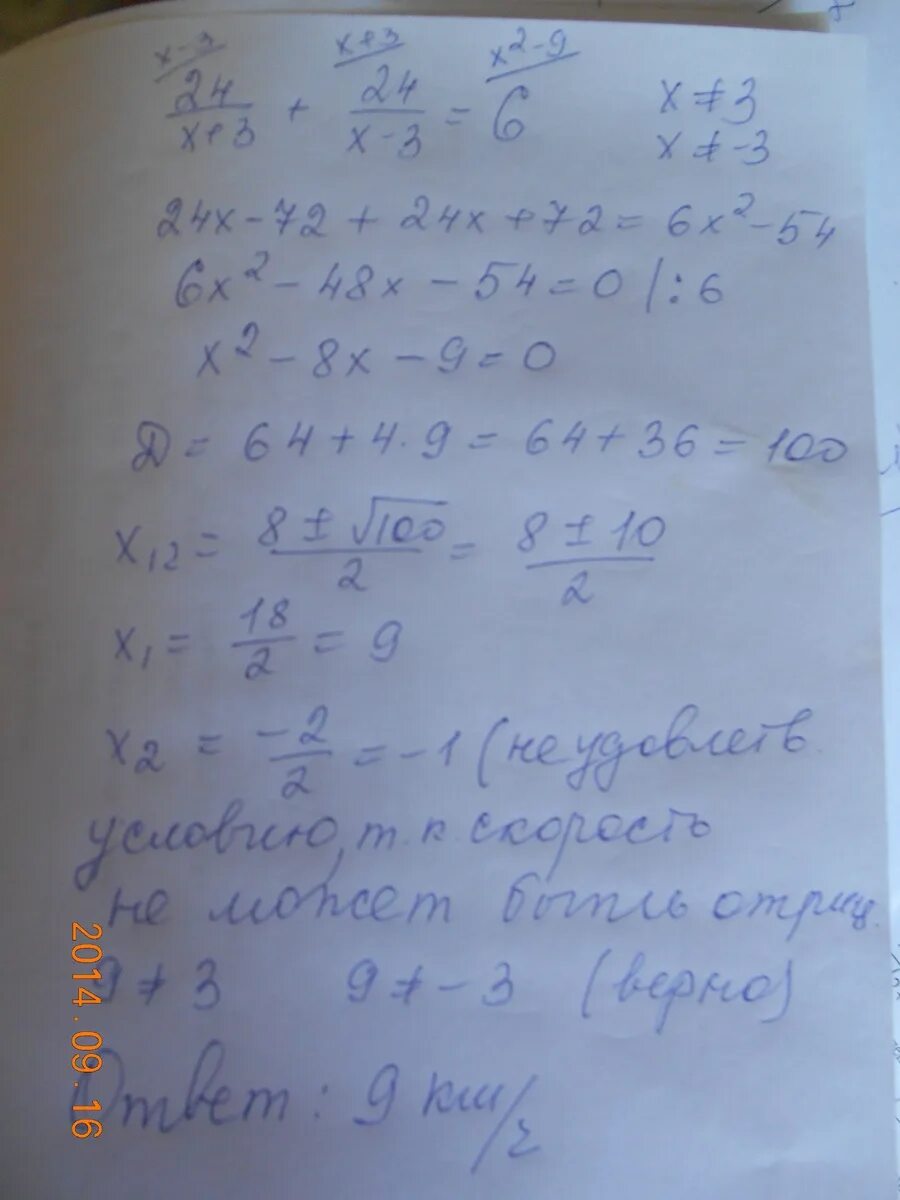 x-3 x+3 x²-9
24/(x+3) + 24/(x-3) = 6 x≠3
x≠-3
24x-72+24x+72=6x²-54
6x²-48x-54=0 |:6
x²-8x-9=0
Д=64+4·9=64+36=100
x₁₂=(8±√100)/2=(8±10)/2
x₁=18/2=9
x₂=-2/2=-1 (не удовлетв.
условию, т.к. скорость
не может быть отриц.
9≠3 9≠-3 (верно)
Ответ: 9 км/ч
2014.09.16